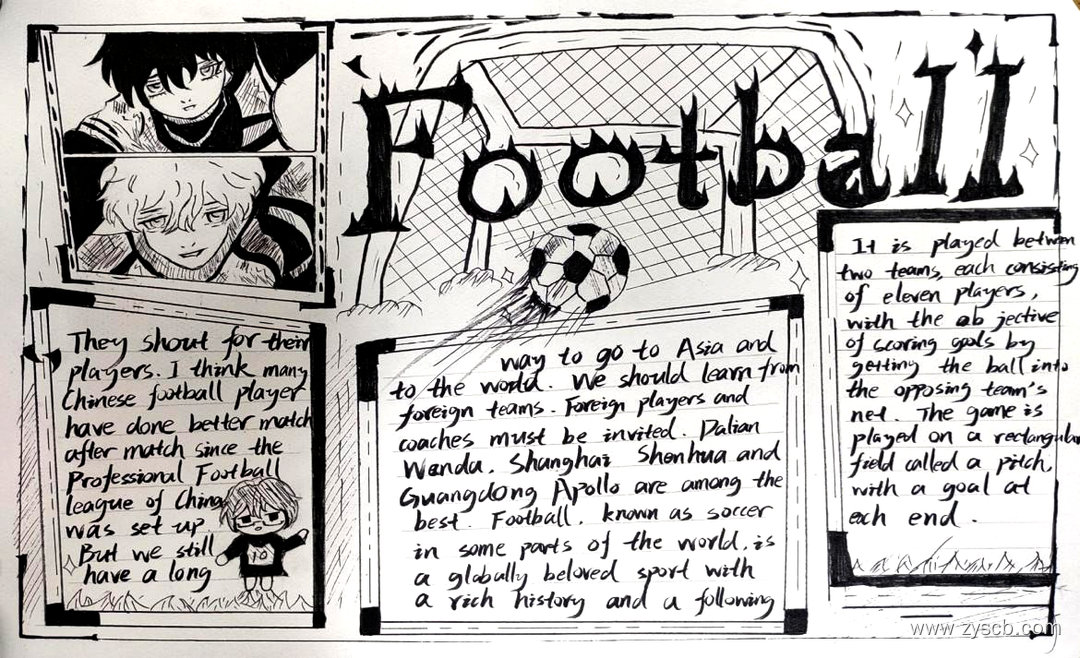 Football
They shout for their
players. I think many
Chinese football player
have done better match
after match since the
Professional Football
league of China
was set up.
But we still
have a long
10
way to go to Asia and
to the world. We should learn from
foreign teams. Foreign players and
coaches must be invited. Dalian
Wanda, Shanghai Shenhua and
Guangdong Apollo are among the
best. Football, known as soccer
in some parts of the world, is
a globally beloved sport with
a rich history and a following
It is played between
two teams, each consisting
of eleven players,
with the ob jective
of scoring gols by
getting the ball into
the opposing team's
net. The game is
played on a rectangular
field called a pitch,
with a goal at
each end.
www.zyscb.com